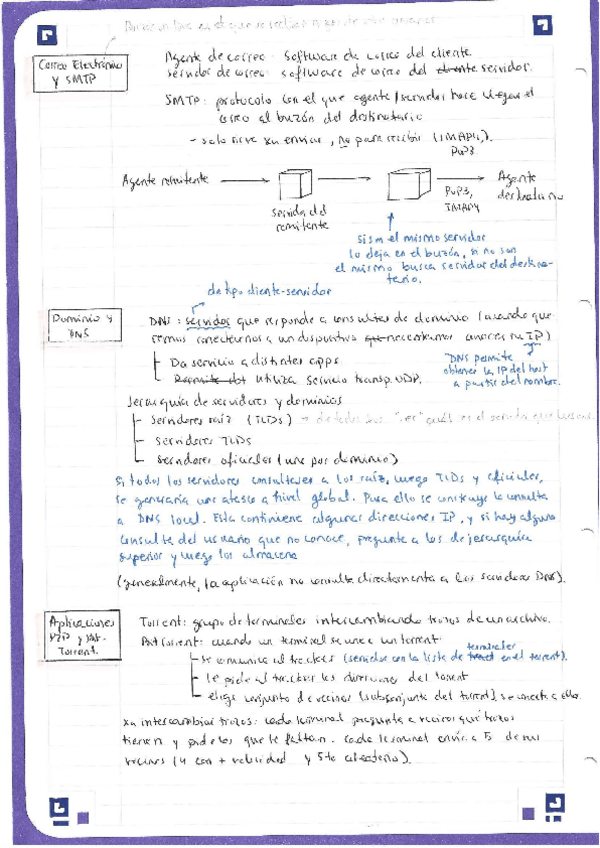 Correo Electrónico
y SMTP
Agente de correo: Software de correo del cliente
servidor de correo: software de correo del cliente servidor.
SMTP: protocolo con el que agente/servidor hace llegar el
correo al buzón del destinatario
- solo sirve xa enviar, no para recibir (IMAP4,).
PoP3
Agente remitente
servidor del
remitente
PoP3,
IMAP4
Agente
destinatario
si son el mismo servidor
lo deja en el buzón, si no son
el mismo busca servidor del destina-
tario.
de tipo cliente-servidor
Dominio y
DNS
DNS: servidor que responde a consultas de dominio (cuando que-
remos conectarnos a un dispositivo que necesitamos conocer su IP)
Da servicio a distintas apps.
Permite utiliza servicio transp. UDP.
DNS permite
obtener la IP del host
a partir del nombre.
Jerarquía de servidores y dominios
Servidores raíz (TLDs) → ".es" cuál es el servidor que
servidores TLDs
servidores oficiales (uno por dominio)
Si todos los servidores consultasen a los raíz, luego TLDs y oficiales,
se generaría un atasco a nivel global. Para ello se construye la consulta
a DNS local. Esta contiene algunas direcciones IP, y si hay alguna
consulta del usuario que no conoce, pregunta a los de jerarquía
superior y luego las almacena
(generalmente, la aplicación no consulta directamente a los servidores DNS).
Aplicaciones
P2P y Bit-
Torrent.
Torrent: grupo de terminales intercambiando trozos de un archivo.
BitTorrent: cuando un terminal se une a un torrent:
se comunica al tracker (servidor con la lista de terminales en el torrent).
le pide al tracker las direcciones del torrent
elige conjunto de vecinos (subconjunto del torrent), se conecta a ellos.
xa intercambiar trozos: cada terminal pregunta a vecinos qué trozos
tienen y pide los que le faltan. Cada terminal envía a 5 de sus
vecinos (4 con + velocidad y 5to aleatorio).